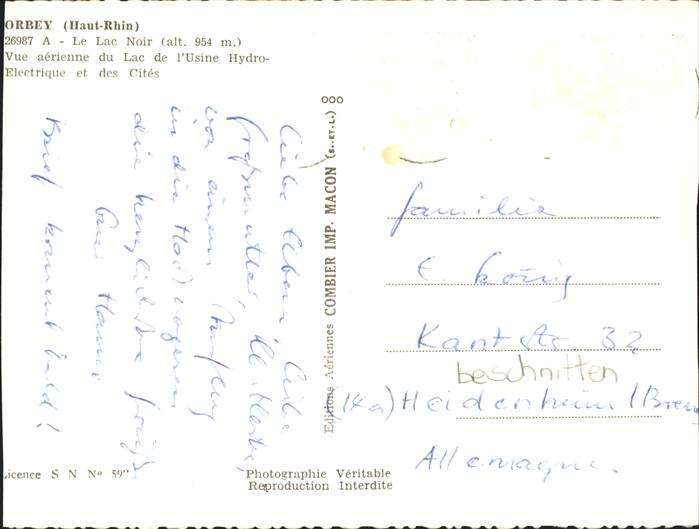 ORBEY (Haut-Rhin)
26987 A - Le Lac Noir (alt. 954 m.)
Vue aérienne du Lac de l'Usine Hydro-
Electrique et des Cités
Liebe Eltern, liebe
Großmutter,
von einem Ausflug
in die Hochvogesen
die herzlichsten Grüße
Eure
Brief kommt bald!
Editions Aériennes COMBIER IMP. MACON (S.-ET-L.)
Familie
E. König
Kantstr. 32
beschnitten
(14a) Heidenheim / Bren
Allemagne.
Licence S N Nº 59
Photographie Véritable
Reproduction Interdite